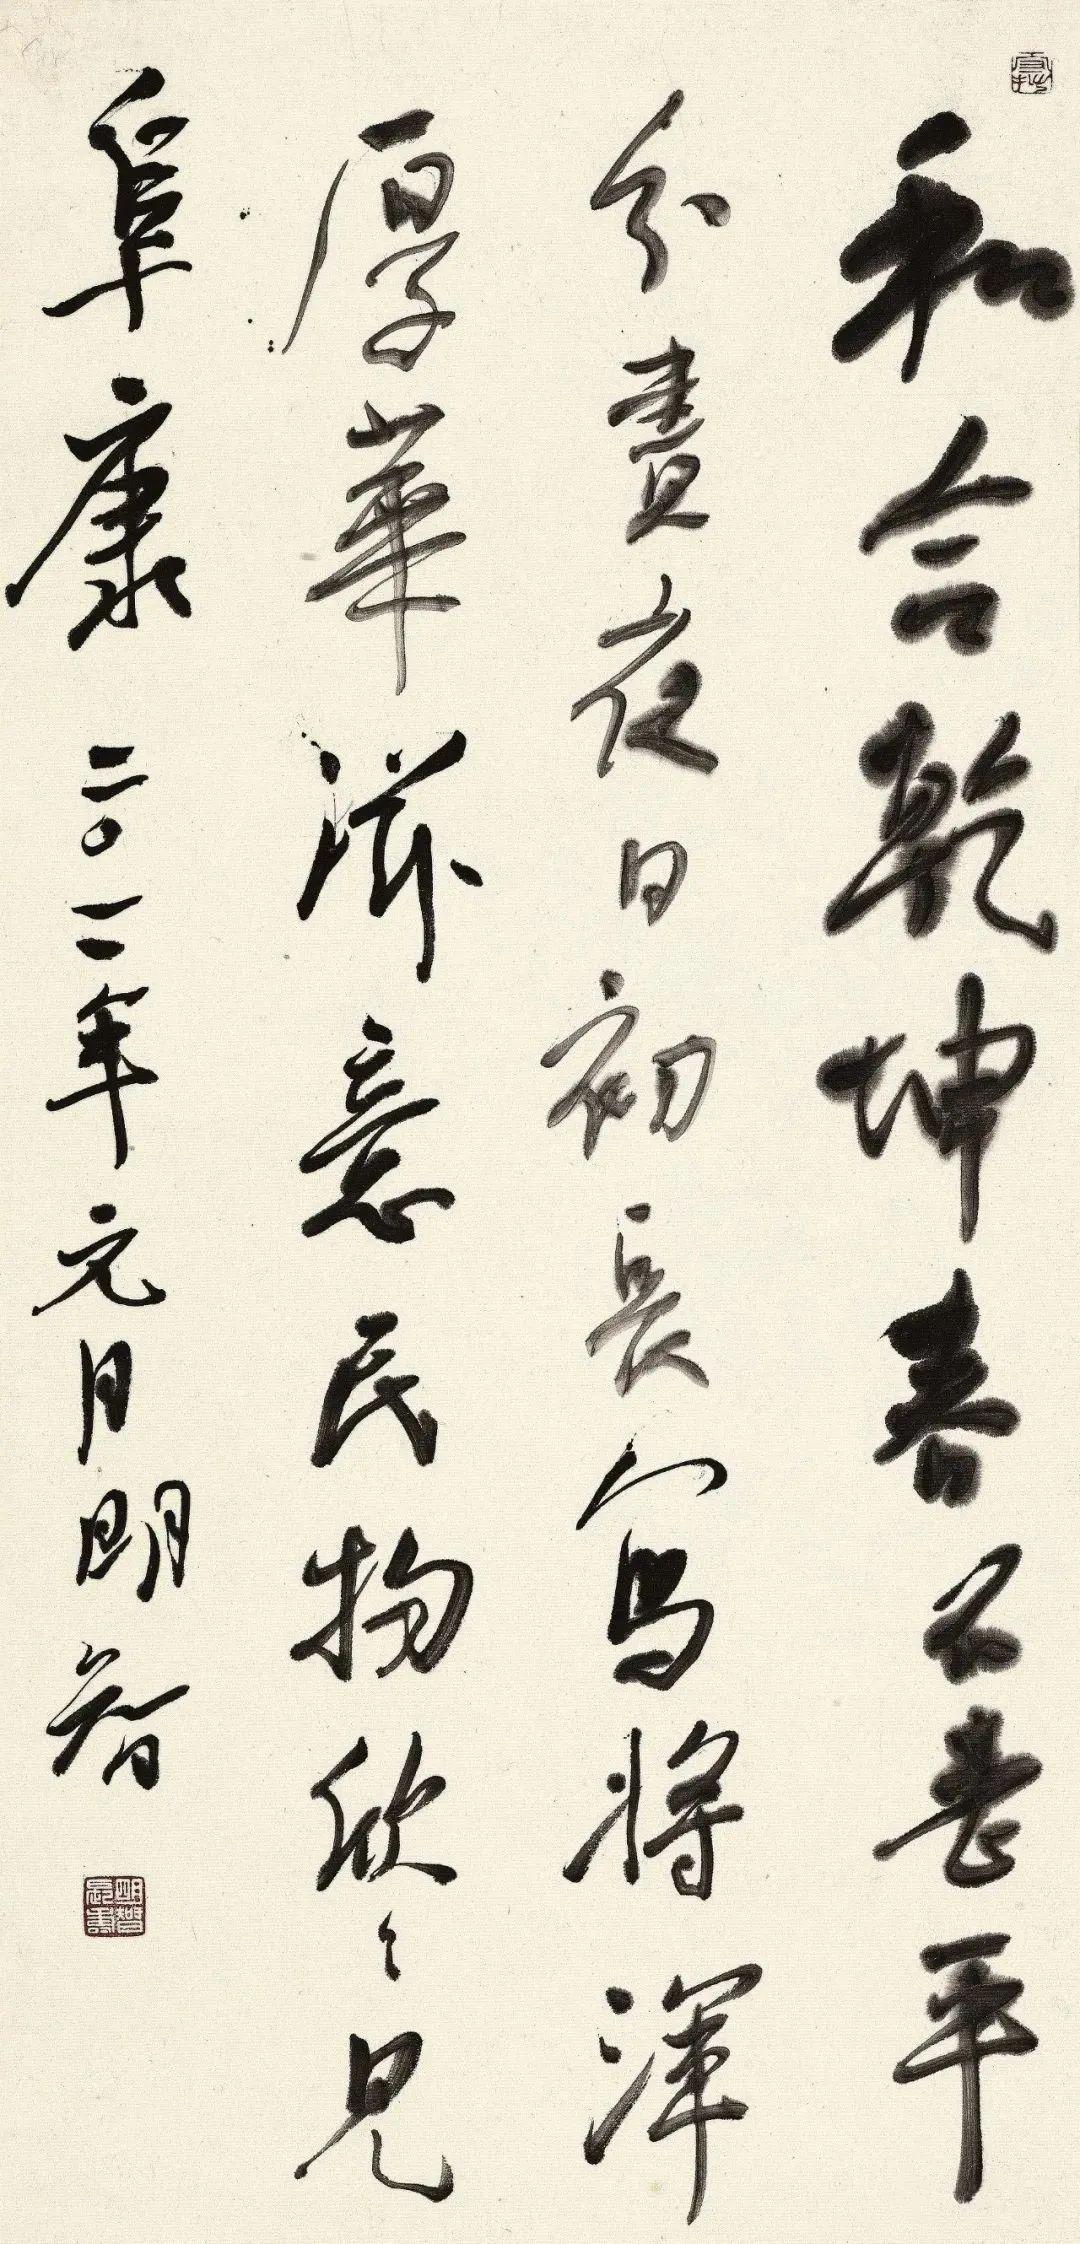 和合乾坤春不老平
分晝夜日初長寫將渾
厚華滋意民物欣〻見
阜康 二〇一一年元月明智